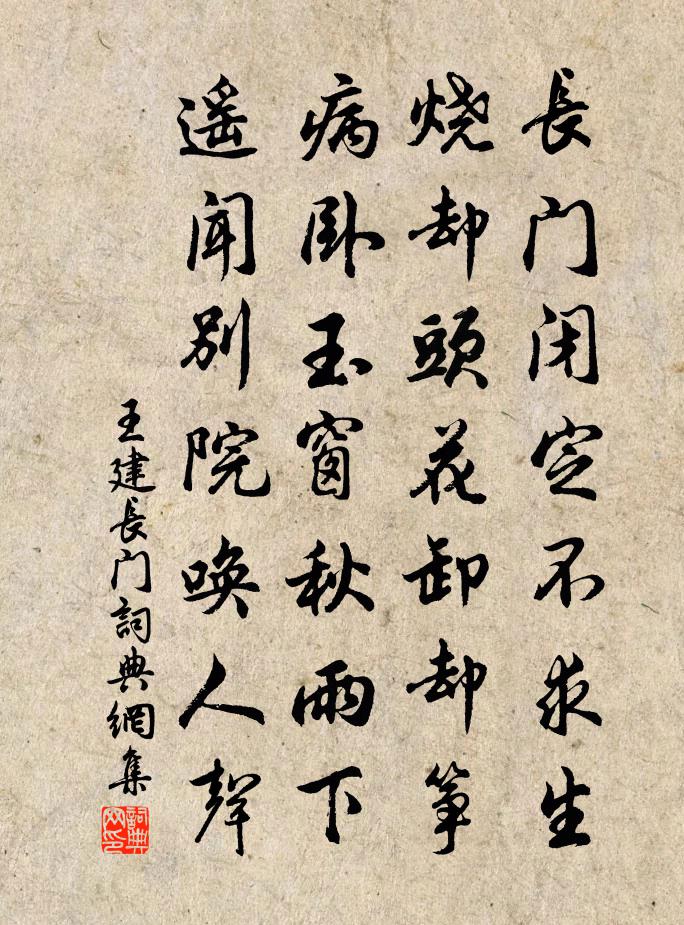 長门闭定不求生
烧却頭花卸却筝
病卧玉窗秋雨下
遥闻别院唤人聲
王建長门詞典網集
詞典网印